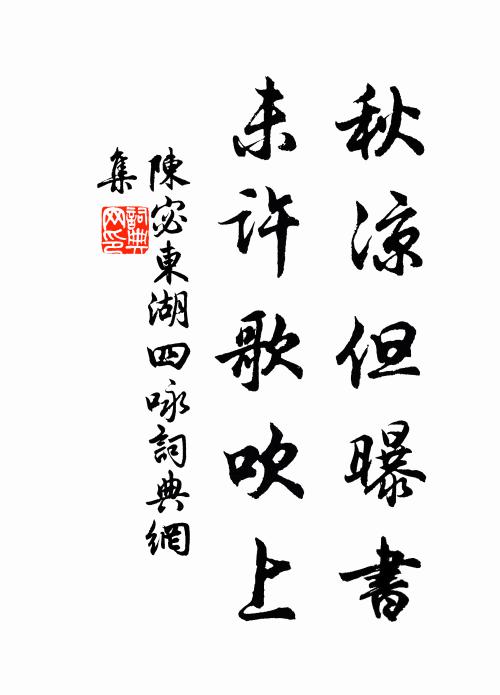 秋涼但曝書
未許歌吹上
陳宓東湖四咏詞典網
集
詞典網印